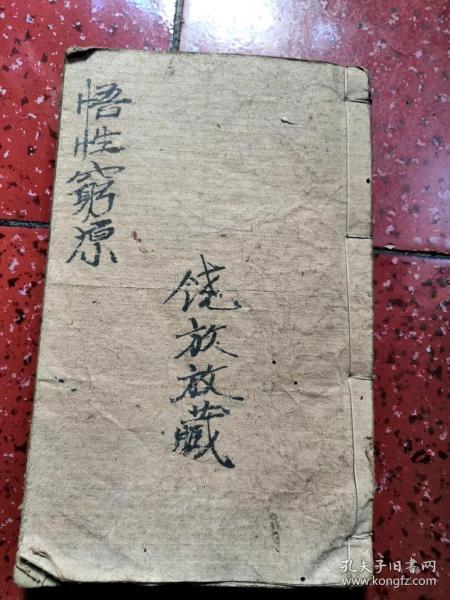 悟性窮原
饶放放藏
孔夫子旧书网
www.kongfz.com